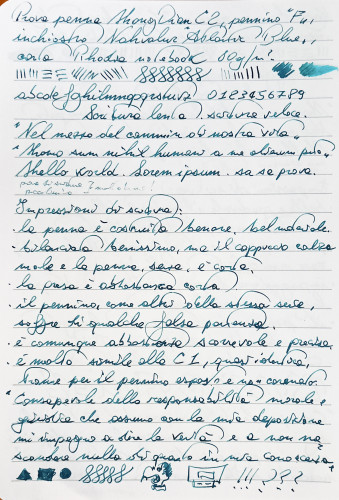 Prova penna Moon Dian C2, pennino "F",
inchiostro Nahvalur Blue,
carta Rhodia notebook 80g/m².
abcdefghilmnopqrstuvz 0123456789
Scrittura lenta, scrittura veloce.
"Nel mezzo del cammin di nostra vita"
"Homo sum nihil humani a me alienum puto"
Hello world. Lorem ipsum. sa se prova.
Impressioni di scrittura:
· la penna è costruita benone, bel materiale.
· bilanciata benissimo, ma il cappuccio calza
male e la penna, senza, è corta.
· la presa è abbastanza corta
· il pennino, come altri della stessa serie,
soffre di qualche falsa partenza.
· è comunque abbastanza scorrevole e preciso.
· è molto simile alla C1, quasi identica,
tranne per il pennino esposto e non carenato.
"Consapevole della responsabilità morale e
giuridica che assumo con la mia deposizione
mi impegno a dire la verità e a non na-
scondere nulla di quanto in mia conoscenza"
!!! ???